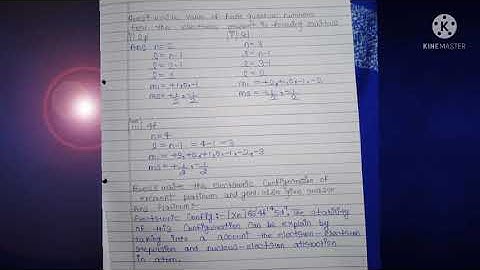 Ques: write value of four quantum numbers
for the electrons present in following subshell
(i) 2p
(ii) 3d
Ans n = 2
n = 3
l = n-1
l = n-1
l = 2-1
l = 3-1
l = 1
l = 2
m = +1,0,-1
m = +2,+1,0,-1,-2
ms = +1/2, -1/2
ms = +1/2, -1/2
(iii) 4f
n = 4
l = n-1 = 4-1 = 3
m = +3,+2,+1,0,-1,-2,-3
ms = +1/2, -1/2
write the electronic configuration of
element platinum and gold also give reason
Ans Platinum:-
Electronic config:- [Xe] 4f14 5d The stability
of this configuration can be explain by
taking into a account the electron-electron
repulsion and nucleus-electron attraction
in atom.
KINEMASTER